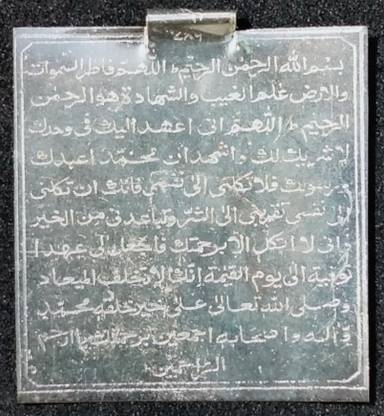 ٧٨٦
بسم الله الرحمن الرحيم ط اللهم فاطر السموات
والارض علم الغيب والشهادة هو الرحمن
الرحيم ط اللهم انى اعهد اليك فى
لا شريك لك واشهد ان محمد اعبدك
ورسولك فلا تكلنى الى نفسى فانك ان تكلنى
الى نفسى تقربنى الى الشر وتباعدنى من الخير
وانى لا اتكل الا برحمتك فاجعل لى عهدا
توفينه الى يوم القيمة انك لا تخلف الميعاد
وصلى الله تعالى على خير خلقه محمد
واله واصحابه اجمعين برحمتك يا ارحم
الرحمين